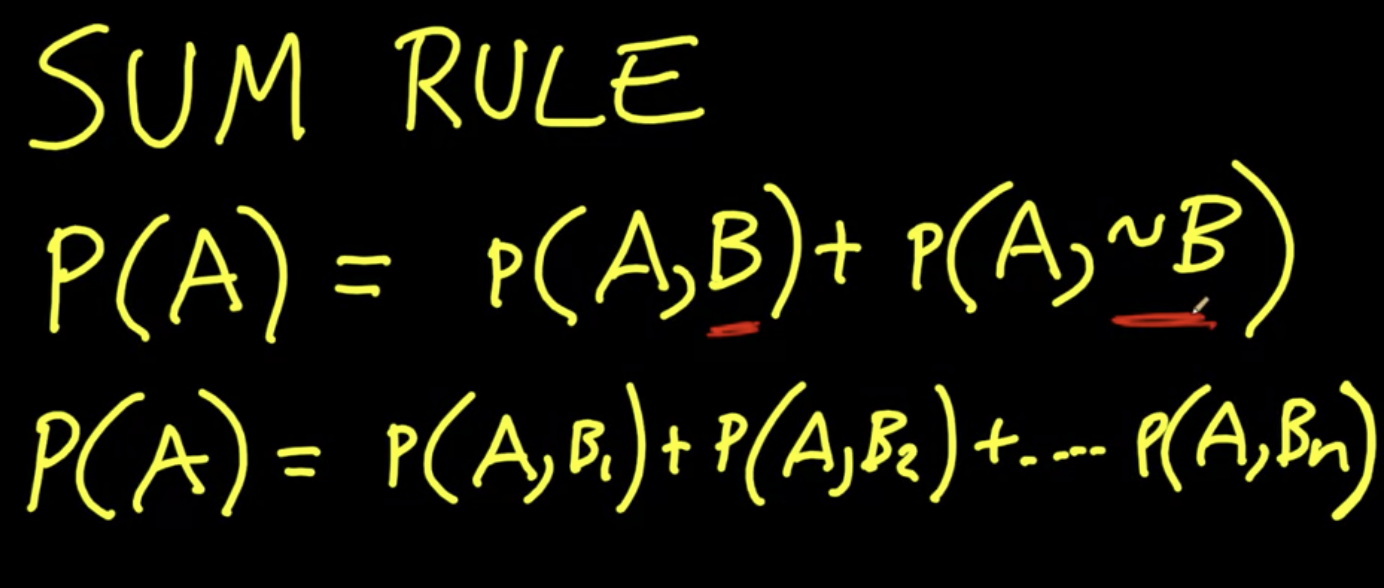 SUM RULE
P(A) = P(A,B) + P(A,~B)
P(A) = P(A,B₁) + P(A,B₂) +.--- P(A,Bn)